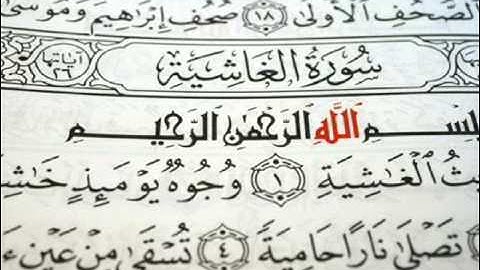 الصُّحُفِ الْأُولَىٰ ١٨ صُحُفِ إِبْرَاهِيمَ وَمُوسَىٰ
سُورَةُ الغَاشِيَةِ آياتها ٢٦
بِسْمِ اللَّهِ الرَّحْمَٰنِ الرَّحِيمِ
يثُ الْغَاشِيَةِ ١ وُجُوهٌ يَوْمَئِذٍ خَاشِ
٣ تَصْلَىٰ نَارًا حَامِيَةً ٤ تُسْقَىٰ مِنْ عَيْنٍ ءَ